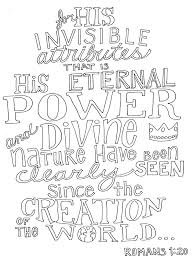 for HIS
INVISIBLE
attributes
THAT IS
HIS ETERNAL
POWER
and DIVINE
NATURE HAVE BEEN
clearly SEEN
Since the
CREATION
OF THE
WORLD...
ROMANS 1:20